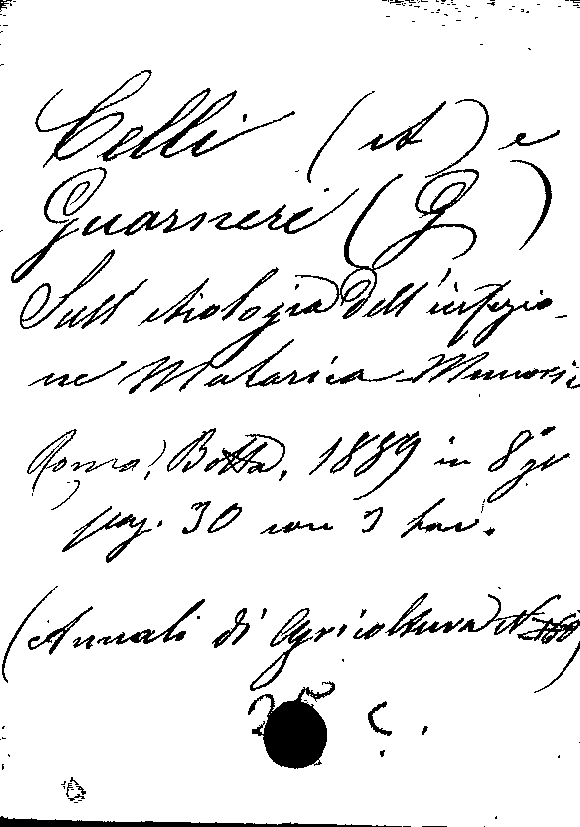 Celli (A) e
Guarneri (G)
Sull'etiologia dell'infezio-
ne Malarica Memoria
Roma, Botta, 1889 in 8° gr
pag. 30 con 3 tav.
(Annali di Agricoltura N
25 C.